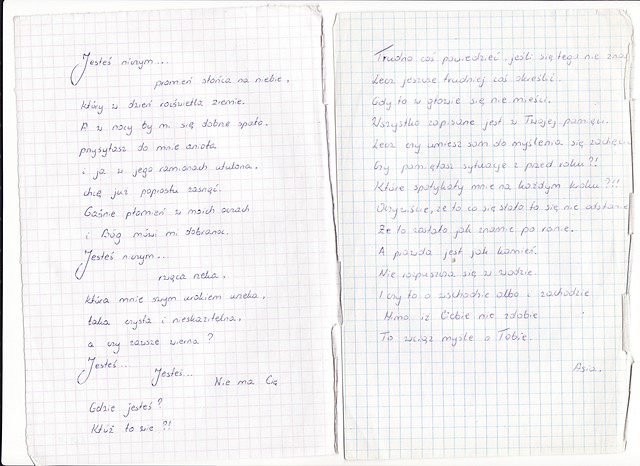 Jesteś niczym...
promień słońca na niebie,
który w dzień rozświetla ziemie.
A w nocy by mi się dobrze spało,
przysyłasz do mnie anioła
i ja w jego ramionach utulona,
chcę już poprostu zasnąć.
Gaśnie płomień w moich oczach
i Bóg mówi mi dobranoc.
Jesteś niczym...
rwąca rzeka,
która mnie swym urokiem urzeka,
taka czysta i nieskazitelna,
a czy zawsze wierna?
Jesteś...
Jesteś...
Nie ma Cię
Gdzie jesteś?
Któż to wie?!
Trudno coś powiedzieć, jeśli się tego nie zna
Lecz jeszcze trudniej coś określić
Gdy to w głowie się nie mieści.
Wszystko zapisane jest w Twojej pamięci.
Lecz czy umiesz sam do myślenia się zachęci
Czy pamiętasz sytuacje z przed roku?!
Które spotykały mnie na każdym kroku?!!
Oczywiście, że to co się stało to się nie odstanie
Że to zostało jak znamie po ranie.
A prawda jest jak kamień.
Nie rozpuszcza się w wodzie.
I czy to o wschodzie albo i zachodzie
Mimo iż Ciebie nie zdobie
To wciąż myśle o Tobie.
Asia.